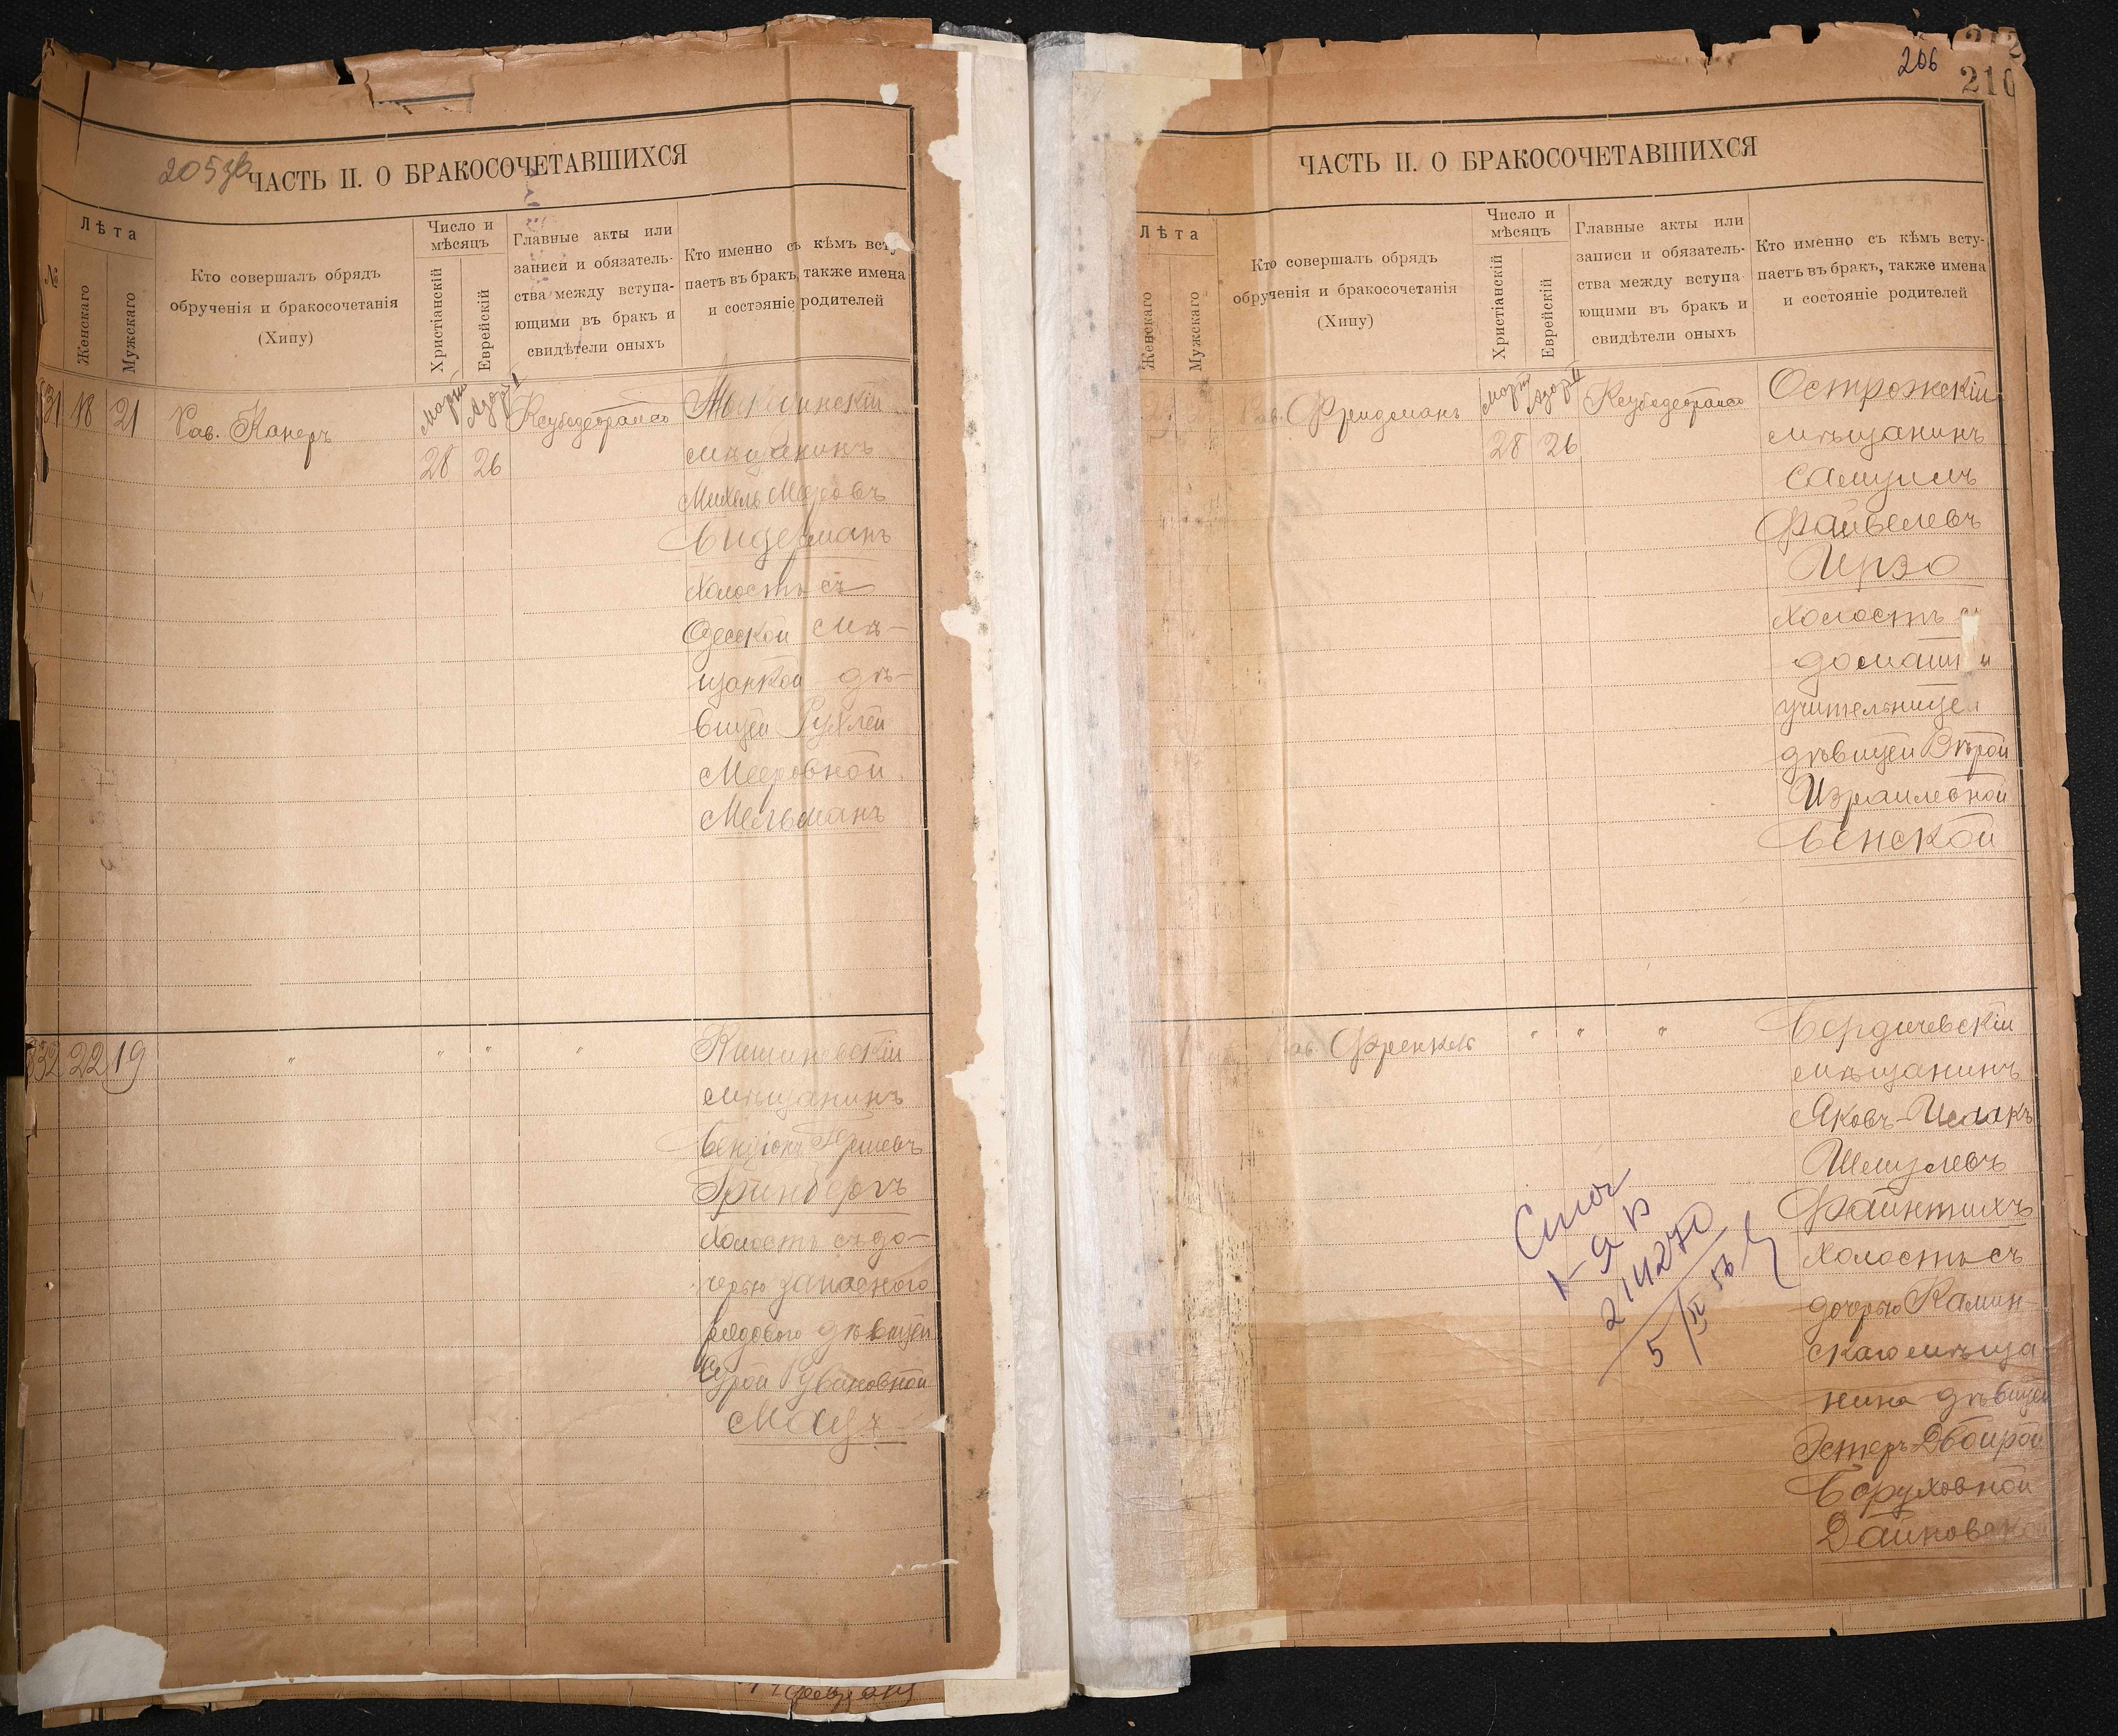 205 об
ЧАСТЬ II. О БРАКОСОЧЕТАВШИХСЯ
№
Лѣта
Женскаго
Мужскаго
Кто совершалъ обрядъ
обрученія и бракосочетанія
(Хипу)
Число и
мѣсяцъ
Христіанскій
Еврейскій
Главные акты или
записи и обязатель-
ства между вступа-
ющими въ бракъ и
свидѣтели оныхъ
Кто именно съ кѣмъ всту
паетъ въ бракъ, также имена
и состояніе родителей
31 18 21
Рав. Канеръ
Марта
28
26
мѣщанинъ
Михель
Бидерманъ
холостъ съ
Одесской мѣ-
щанкой дѣ-
вицей Рухлей
Мееровной
Мельманъ
832 22 19
"
"
"
"
Кишиневскій
мѣщанинъ
Бенціонъ
Гринбергъ
холостъ съ до-
черью запасного
рядового дѣвицей
Сурой Рувиновной
206
210
ЧАСТЬ II. О БРАКОСОЧЕТАВШИХСЯ
Лѣта
Женскаго
Мужскаго
Кто совершалъ обрядъ
обрученія и бракосочетанія
(Хипу)
Число и
мѣсяцъ
Христіанскій
Еврейскій
Главные акты или
записи и обязатель-
ства между вступа
ющими въ бракъ и
свидѣтели оныхъ
Кто именно съ кѣмъ всту-
паетъ въ бракъ, также имена
и состояніе родителей
Рав. Фридманъ
Марта
28
26
Острожскій
мѣщанинъ
Самуилъ
Файвелевъ
холостъ
учительницей
дѣвицей Вѣрой
Израилевной
Бенской
Рав. Френкель
"
"
"
Бердичевскій
мѣщанинъ
Яковъ-Исаакъ
Шмулевъ
Файнтихъ
холостъ съ
дочерью Камин-
скаго мѣща-
нина дѣвицей
Эстеръ Двойрой
Боруховной
5/IV 56